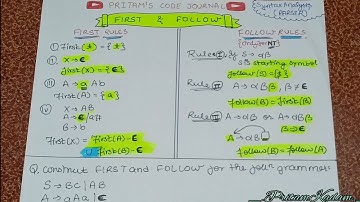 PRITAM'S CODE JOURNAL
FIRST & FOLLOW
Syntax Analysis
(PARSER)
FIRST RULES
i) First(t) = {t}
ii) X → ε
First(X) = {ε}
iii) A → a Ab
First(A) = {a}
iv) X → AB
A → ε/a
B → b
First(X) = First(A) - ε
U First(B) - ε
FOLLOW RULES
(Only for NT)
Rule I if S → αβ
S is starting symbol
Follow(S) = {$}
Rule II A → αBβ, β ≠ ε
Follow(B) = First(β)
Rule III A → αBβ or A → αB
β → ε
A → αB
Follow(B) = Follow(A)
Q. Construct FIRST and FOLLOW for the folln grammar:
S → Bc|AB
A → aAa|ε
Pritam Kadam